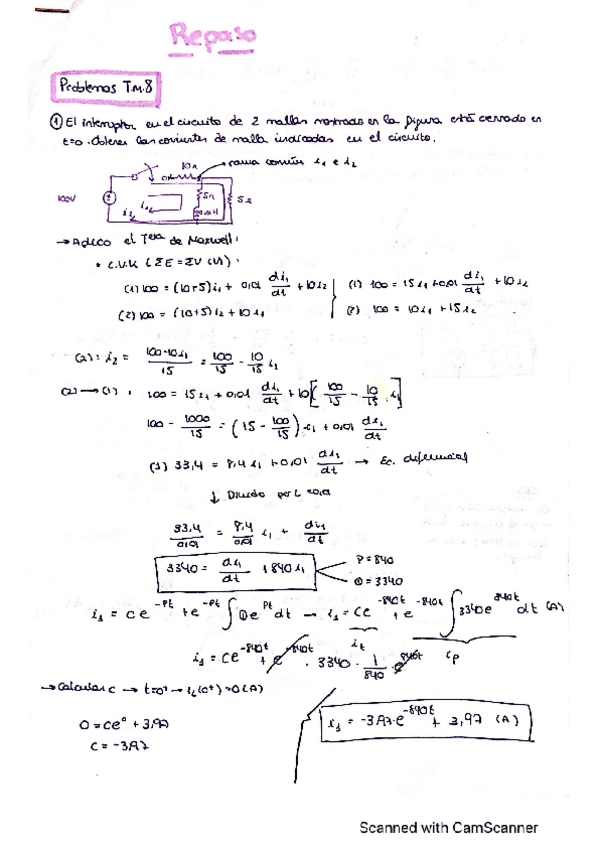 Repaso
Problemas T.M.8
① El interruptor en el circuito de 2 mallas mostrado en la figura está cerrado en
t=0. Obtener las corrientes de malla indicadas en el circuito.
10Ω → rama común i1 e i2
100V i2 i1 5Ω 0.01H 5Ω
→ Aplico el Tma de Maxwell:
• L.V.K (ΣE = ΣV (V)):
(1) 100 = (10+5)i1 + 0,01 di1/dt + 10i2
(2) 100 = (10+5)i2 + 10i1
(1) 100 = 15i1 + 0,01 di1/dt + 10i2
(2) 100 = 10i1 + 15i2
(2): i2 = 100-10i1/15 = 100/15 - 10/15 i1
(2) → (1): 100 = 15i1 + 0,01 di1/dt + 10[100/15 - 10/15 · i1]
100 - 1000/15 = (15 - 100/15) · i1 + 0,01 di1/dt
(3) 33,4 = 8,4 i1 + 0,01 di1/dt → Ec. diferencial
↓ Divido por L = 0,01
33,4/0,01 = 8,4/0,01 i1 + di1/dt
3340 = di1/dt + 840i1
P = 840
Q = 3340
i1 = ce^-Pt + e^-Pt ∫ Qe^Pt dt → i1 = ce^-840t + e^-840t ∫ 3340e^840t dt (A)
it
ip
i1 = ce^-840t + e^-840t · 3340 · 1/840 · e^840t
→ Calcular c → t=0+ → iL(0+) = 0 (A)
0 = ce^0 + 3,97
c = -3,97
i1 = -3,97·e^-840t + 3,97 (A)
Scanned with CamScanner